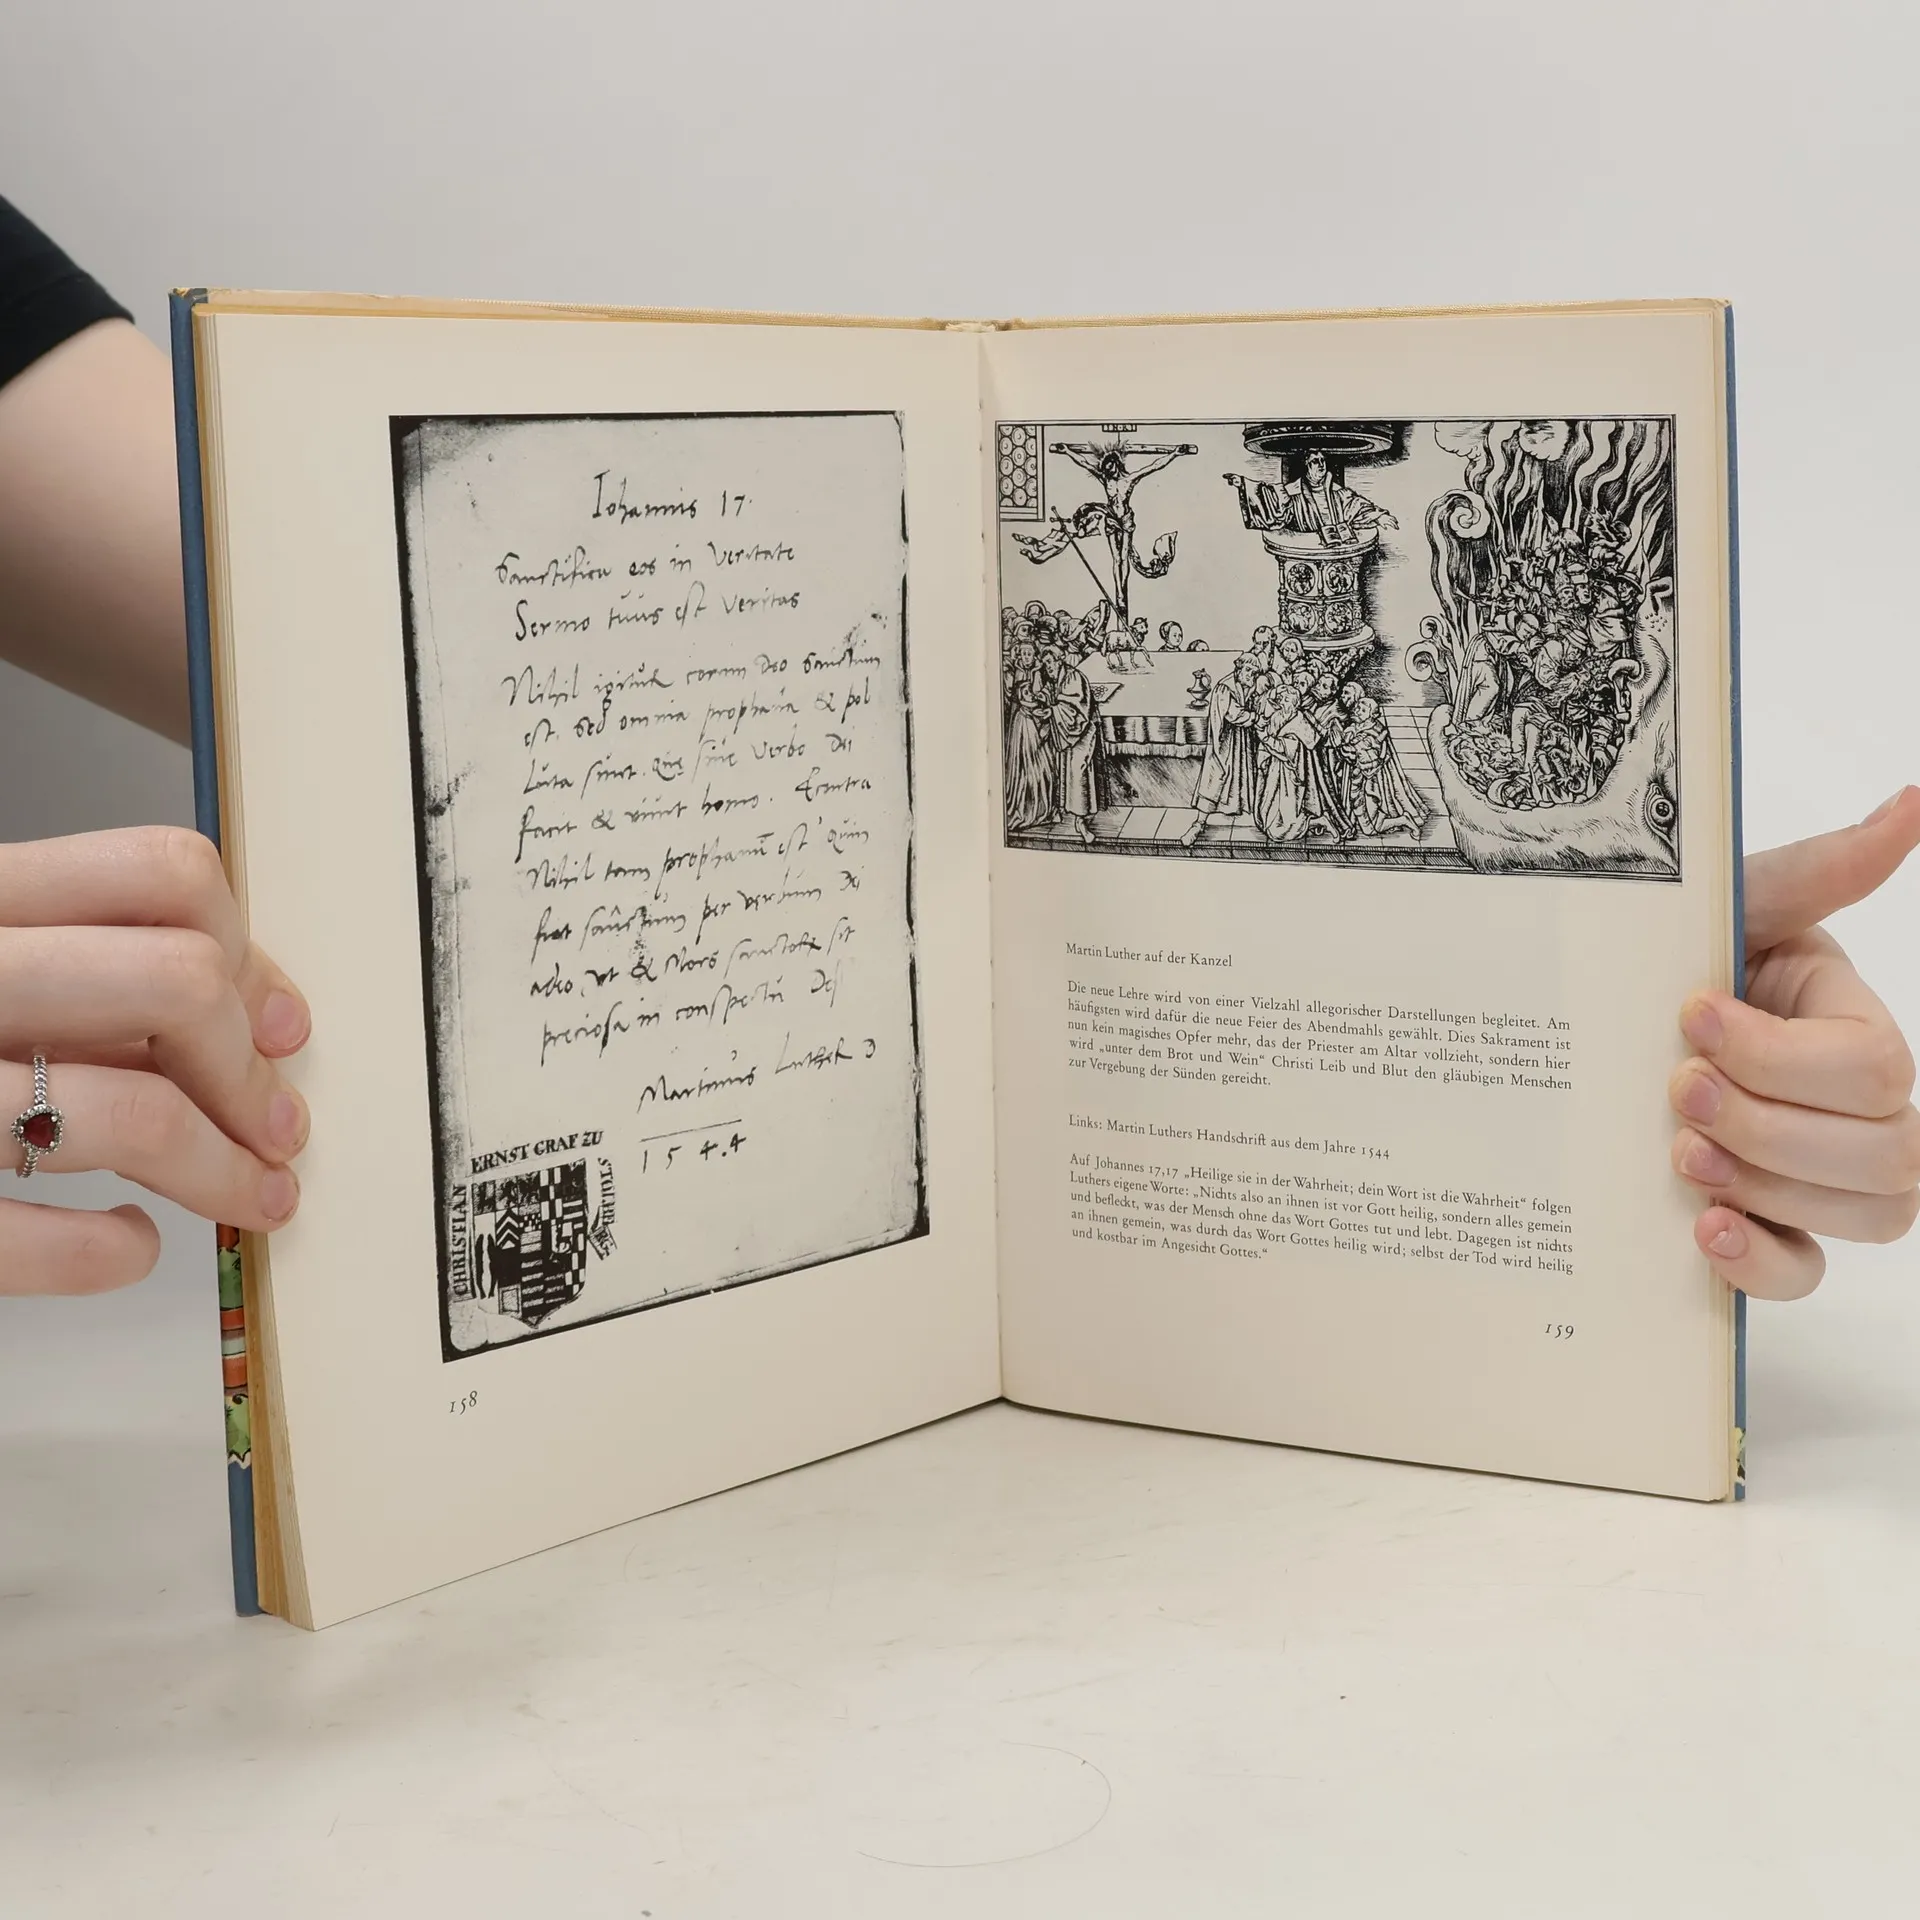 Iohannis 17.
Sanctifica eos in veritate
Sermo tuus est veritas
Nihil igitur coram Deo Sanctum
est. Sed omnia prophana & pol
luta sunt. quę sine verbo Dei
facit & vivit homo. Econtra
Nihil tam prophanū est quin
fiat sanctum per verbum Dei
adeo, ut & Mors sanctorum sit
preciosa in conspectu
Martinus Luther D
1544
ERNST GRAF ZU
STOLBERG
CHRISTIAN
158
INRI
Martin Luther auf der Kanzel
Die neue Lehre wird von einer Vielzahl allegorischer Darstellungen begleitet. Am
häufigsten wird dafür die neue Feier des Abendmahls gewählt. Dies Sakrament ist
nun kein magisches Opfer mehr, das der Priester am Altar vollzieht, sondern hier
wird „unter dem Brot und Wein“ Christi Leib und Blut den gläubigen Menschen
zur Vergebung der Sünden gereicht.
Links: Martin Luthers Handschrift aus dem Jahre 1544
Auf Johannes 17,17 „Heilige sie in der Wahrheit; dein Wort ist die Wahrheit“ folgen
Luthers eigene Worte: „Nichts also an ihnen ist vor Gott heilig, sondern alles gemein
und befleckt, was der Mensch ohne das Wort Gottes tut und lebt. Dagegen ist nichts
an ihnen gemein, was durch das Wort Gottes heilig wird; selbst der Tod wird heilig
und kostbar im Angesicht Gottes.“
159